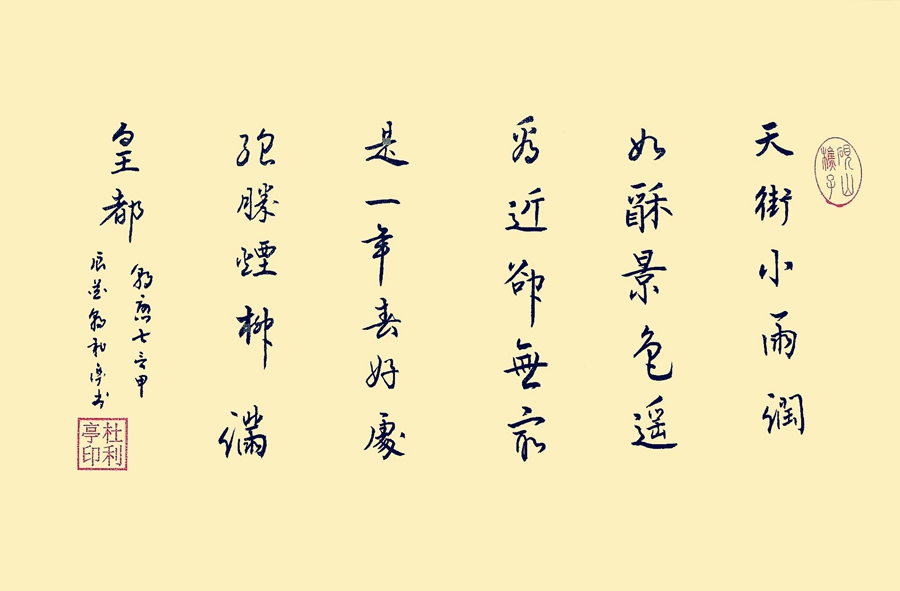 硯山樵子
天街小雨潤
如酥景色遥
看近卻無最
是一年春好處
絕勝煙柳滿
皇都
唐七言甲
辰利亭书
杜利亭印